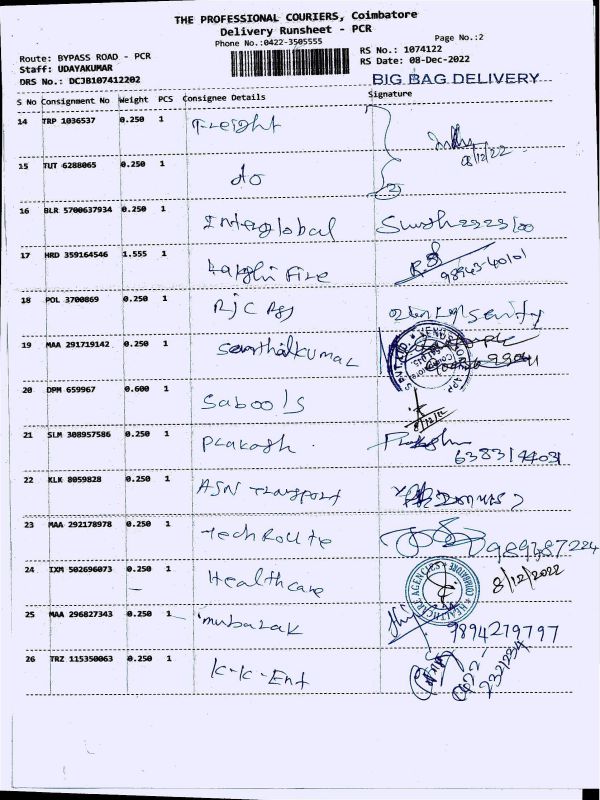 THE PROFESSIONAL COURIERS, Coimbatore
Delivery Runsheet - PCR
Phone No.:0422-3505555
Page No.:2
Route: BYPASS ROAD - PCR
RS No.: 1074122
Staff: UDAYAKUMAR
RS Date: 08-Dec-2022
DRS No.: DCJB107412202
BIG BAG DELIVERY
S No Consignment No Weight PCS Consignee Details Signature
14 TRP 1036537 0.250 1 Freight
08/12/22
15 TUT 6288065 0.250 1 do
16 BLR 5700637934 0.250 1 Interglobal
17 HRD 359164546 1.555 1 Fire
98943-40101
18 POL 3700869 0.250 1 RJC Agy
19 MAA 291719142 0.250 1 Senthilkumar
20 DPM 659967 0.600 1 Sabools
8/12/22
21 SLM 308957586 0.250 1 Prakash Prakash
6383144031
22 KLK 8059828 0.250 1 ASN Transport
23 MAA 292178978 0.250 1 TechRoute
989487224
24 IXM 502696073 0.250 1 Healthcare
HEALTHCARE AGENCIES
COIMBATORE
8/12/2022
25 MAA 296827343 0.250 1 mubarak
9894279797
26 TRZ 115350063 0.250 1 K-K-Ent
0422-
2321234